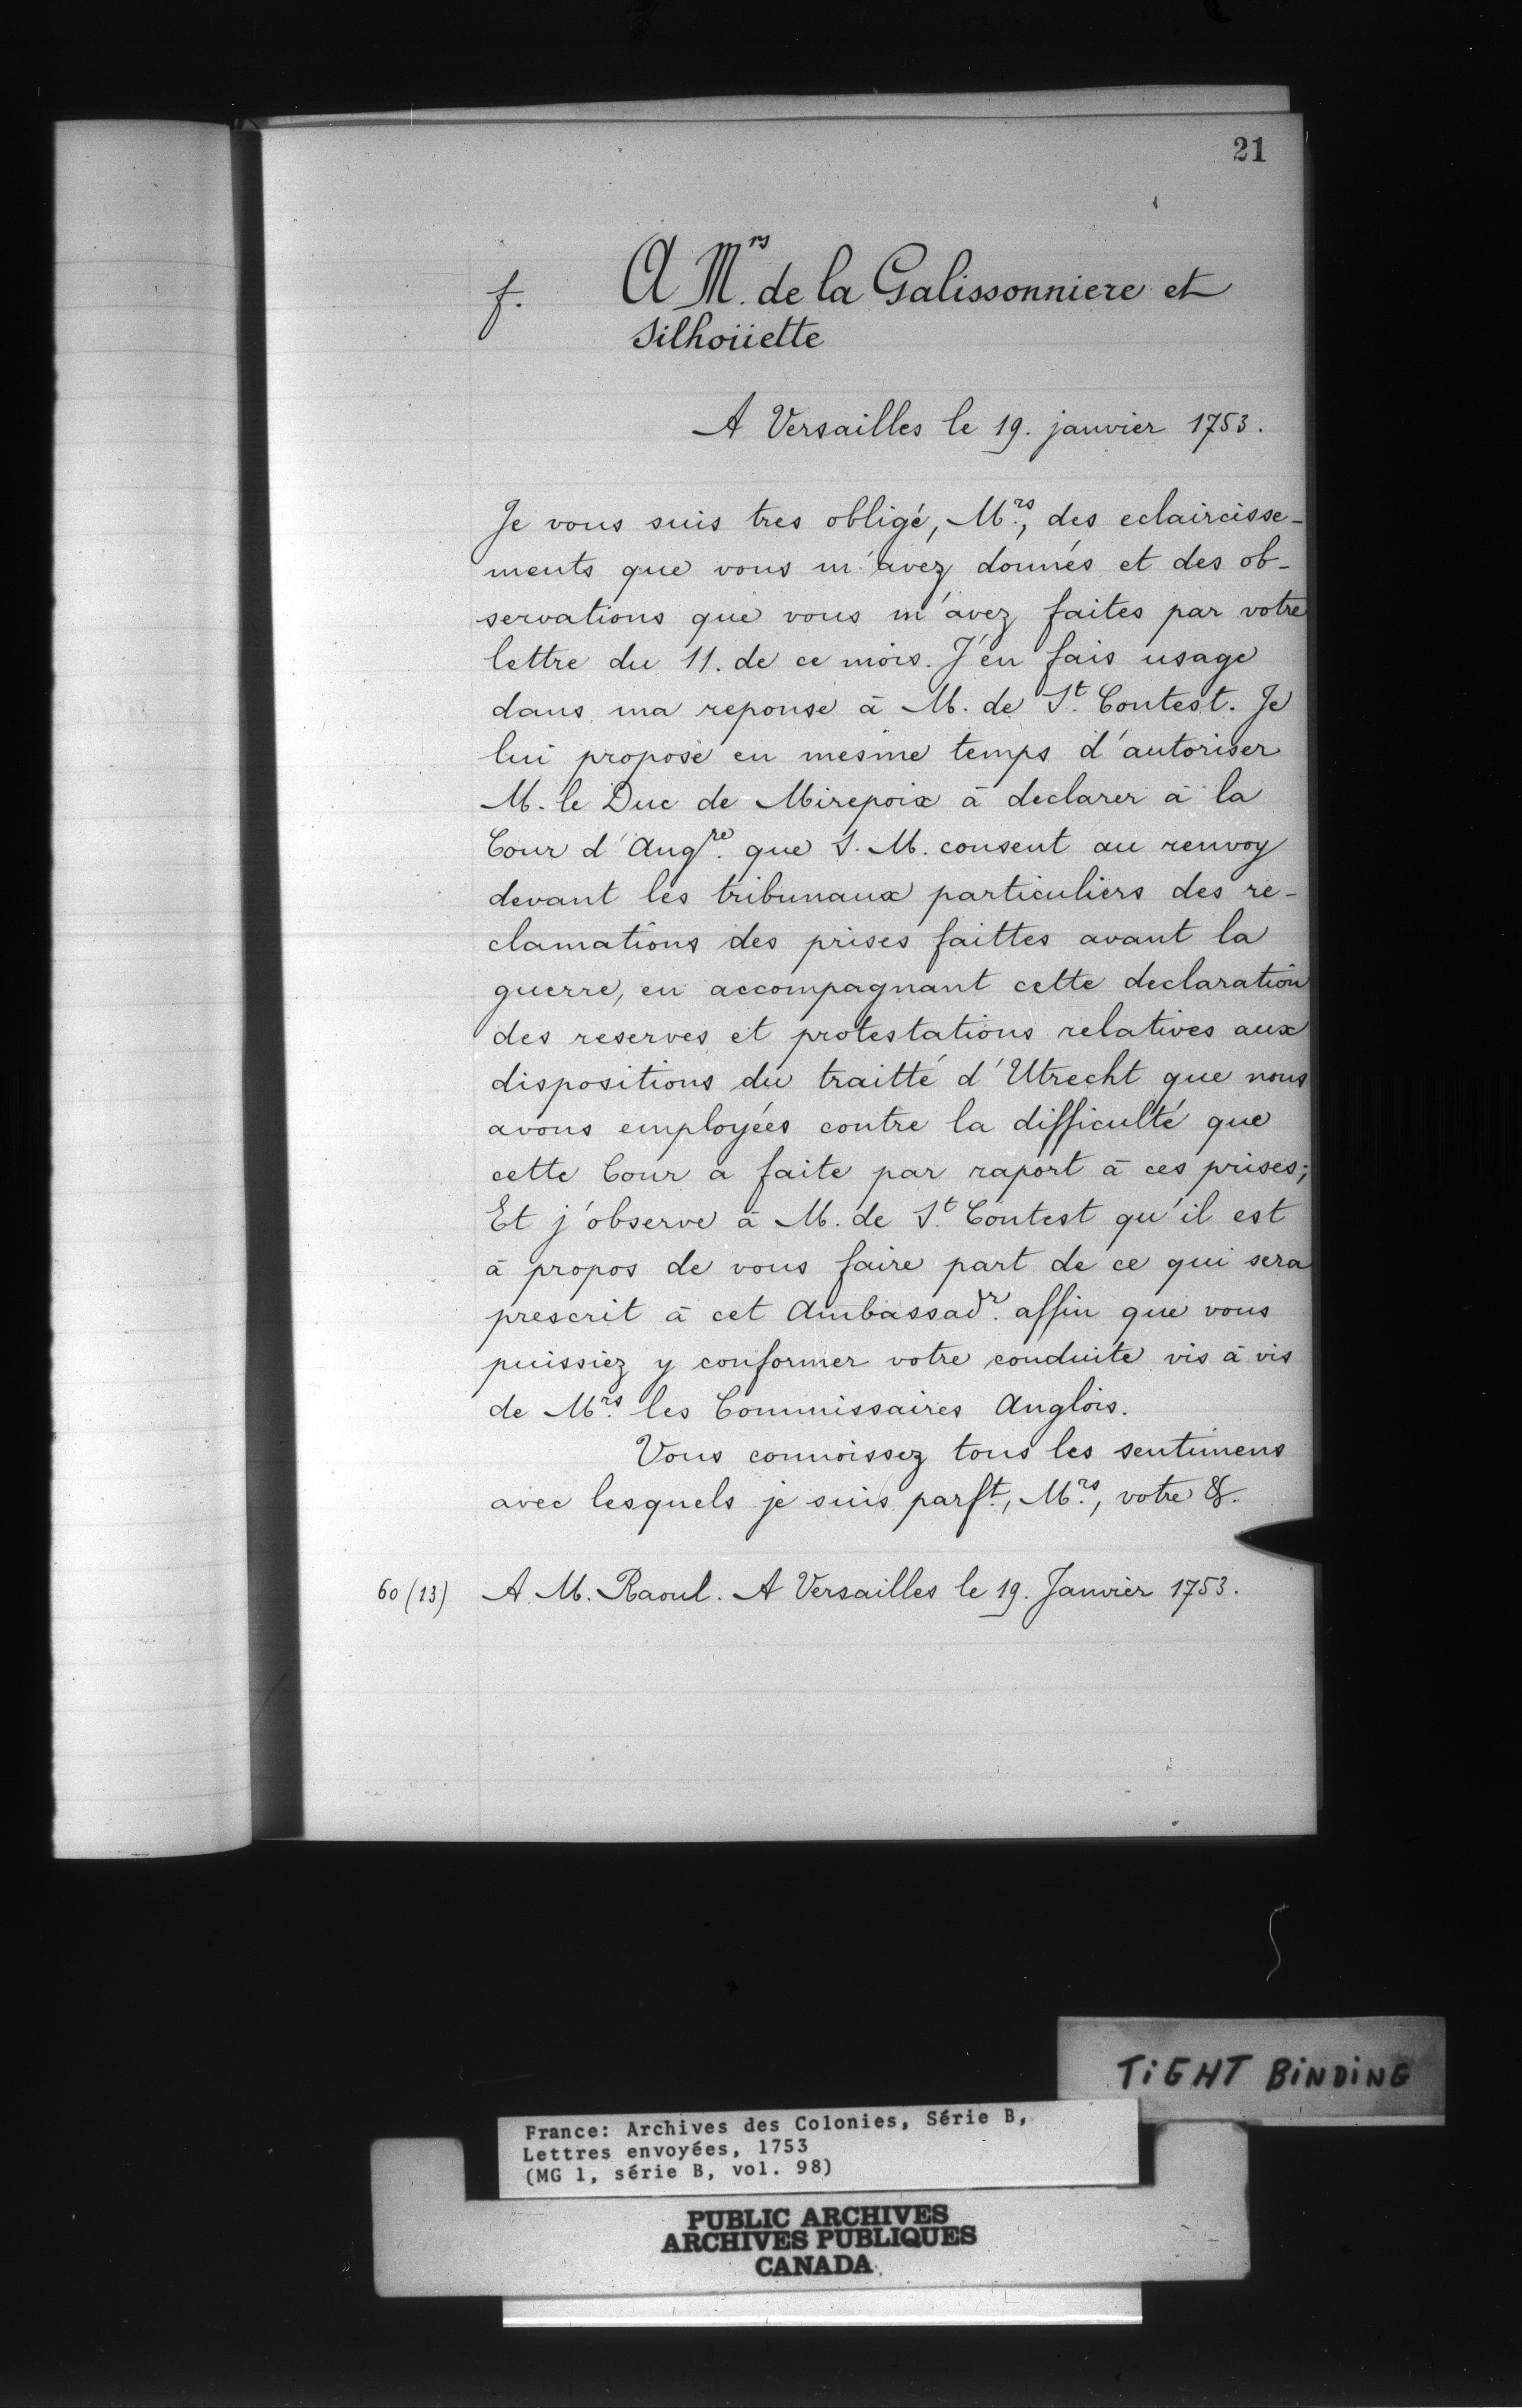 21
f. A Mrs. de la Galissonniere et
Silhoüette
A Versailles le 19. janvier 1753.
Je vous suis tres obligé, Mrs., des eclaircisse-
ments que vous m'avez donnés et des ob-
servations que vous m'avez faites par votre
lettre du 11. de ce mois. J'en fais usage
dans ma reponse à M. de St. Contest. Je
lui propose en mesme temps d'autoriser
M. le Duc de Mirepoix à declarer à la
Cour d'Angre. que S. M. consent au renvoy
devant les tribunaux particuliers des re-
clamations des prises faittes avant la
guerre, en accompagnant cette declaration
des reserves et protestations relatives aux
dispositions du traitté d'Utrecht que nous
avons employées contre la difficulté que
cette Cour a faite par raport à ces prises;
Et j'observe à M. de St. Contest qu'il est
à propos de vous faire part de ce qui sera
prescrit à cet Ambassadr. affin que vous
puissiez y conformer votre conduite vis à vis
de Mrs. les Commissaires Anglois.
Vous connoissez tous les sentimens
avec lesquels je suis parft., Mrs., votre &.
60 (13) A M. Raoul. A Versailles le 19. Janvier 1753.
TiGHT BiNDiNG
France: Archives des Colonies, Série B,
Lettres envoyées, 1753
(MG 1, série B, vol. 98)
PUBLIC ARCHIVES
ARCHIVES PUBLIQUES
CANADA